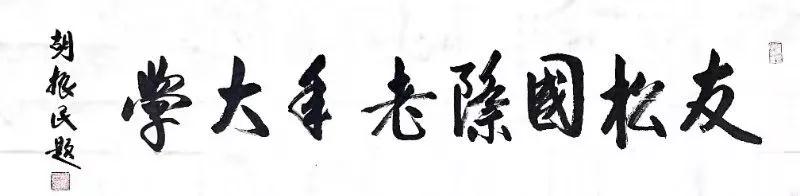 友松國際老年大學
胡振民題